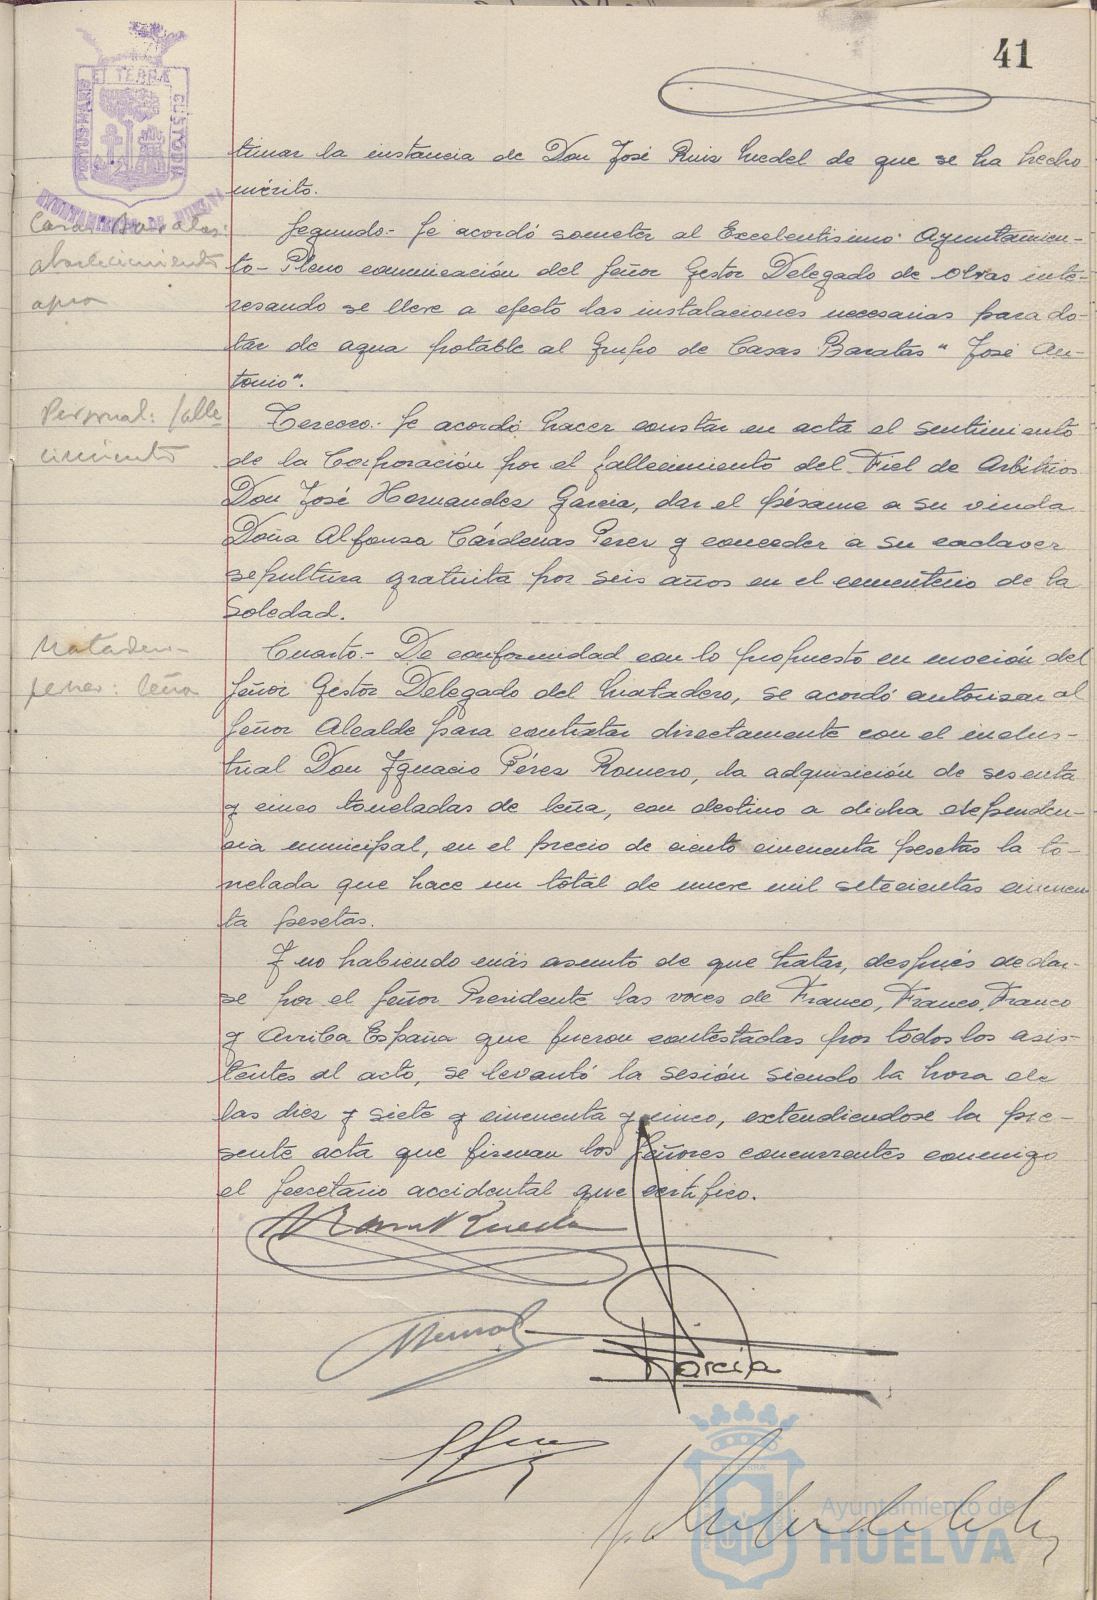 41
PORTUS MARIS
ET TERRÆ
CUSTODIA
AYUNTAMIENTO DE HUELVA
timar la instancia de Don José Ruiz Medel de que se ha hecho
mérito.
Casas Baratas:
abastecimiento
agua
Segundo.- Se acordó someter al Excelentisimo Ayuntamien-
to-Pleno comunicación del Señor Gestor Delegado de Obras inte-
resando se lleve a efecto las instalaciones necesarias para do-
tar de agua potable al Grupo de Casas Baratas "José An-
tonio".
Personal: falle
cimiento
Tercero.- Se acordó hacer constar en acta el sentimiento
de la Corporación por el fallecimiento del Fiel de Arbitrios
Don José Hernandez Garcia, dar el pésame a su viuda
Doña Alfonsa Cárdenas Perez y conceder a su cadaver
sepultura gratuita por seis años en el cementerio de la
Soledad.
leña
Cuarto.- De conformidad con lo propuesto en moción del
Señor Gestor Delegado del Matadero, se acordó autorizar al
Señor Alcalde para contratar directamente con el indus-
trial Don Ignacio Pérez Romero, la adquisición de sesenta
y cinco toneladas de leña, con destino a dicha dependen-
cia municipal, en el precio de ciento cincuenta pesetas la to-
nelada que hace un total de nueve mil setecientas cincuen
ta pesetas.
Y no habiendo más asunto de que tratar, después de dar-
se por el Señor Presidente las voces de Franco, Franco, Franco
y Arriba España que fueron contestadas por todos los asis-
tentes al acto, se levantó la sesión siendo la hora de
las diez y siete y cincuenta y cinco, extendiendose la pre-
sente acta que firman los Señores concurrentes conmigo
el Secretario accidental que certifico.
Garcia
Ayuntamiento de
HUELVA